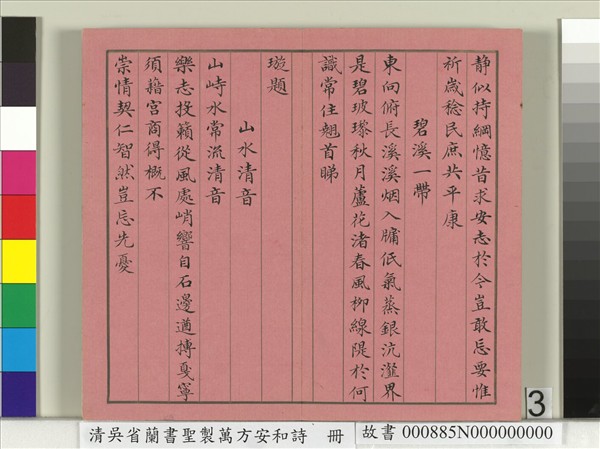 静似持綱憶昔求安志於今豈敢忘要惟
祈歲稔民庶共平康
碧溪一帶
東向俯長溪溪烟入牖低氣蒸銀沆瀣界
是碧玻瓈秋月蘆花渚春風柳線隄於何
識常住翹首睇
璇題
山水清音
山峙水常流清音
樂志投籟從風處峭響自石邊遒搏戛寧
須籍宮商得概不
崇情契仁智然豈忘先憂
3
清吳省蘭書聖製萬方安和詩 冊
故書 000885N000000000